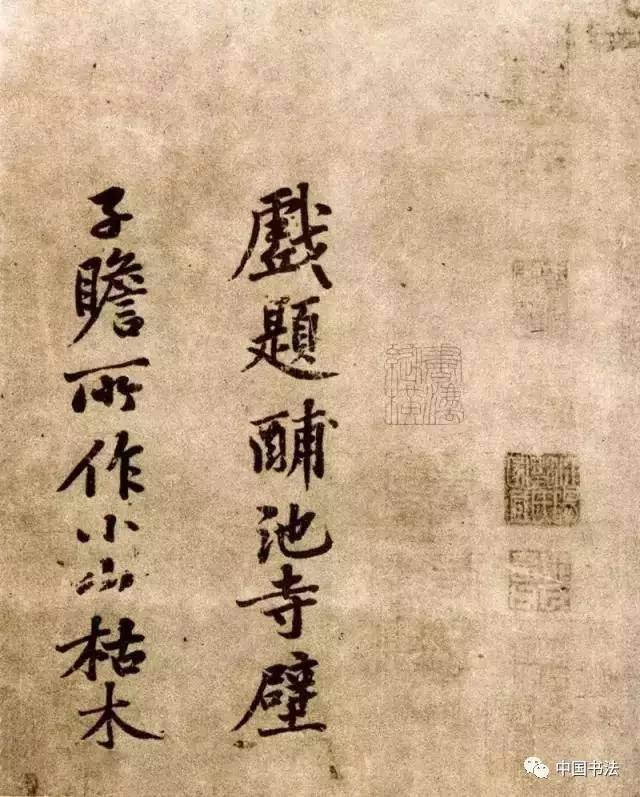 戲題酺池寺壁
子瞻所作小山枯木
中国书法